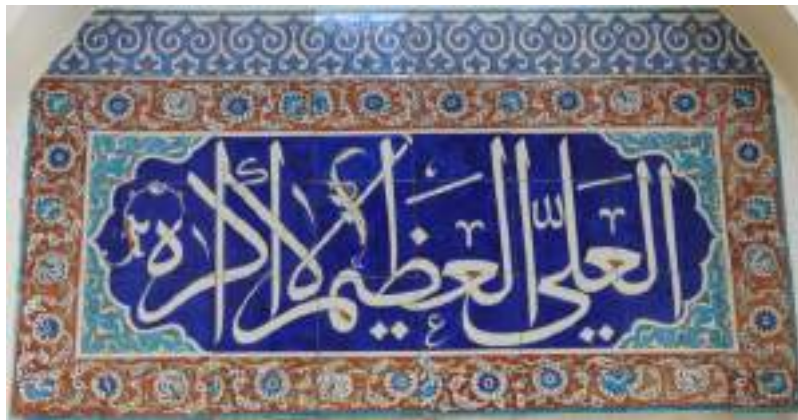 العلي العظيم لا اكراه